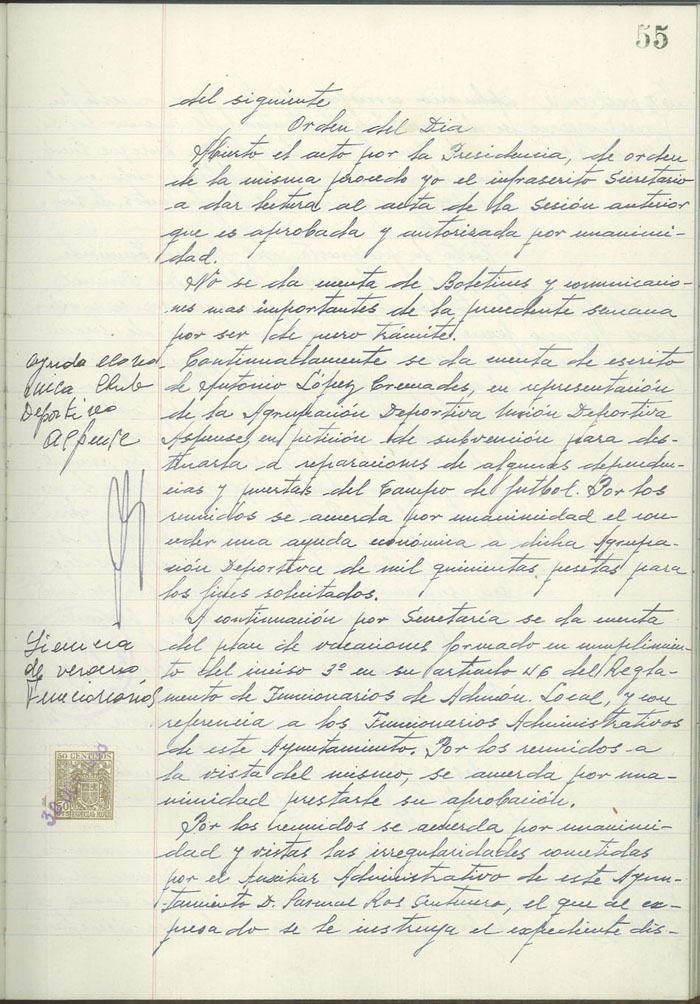 55
del siguiente
Orden del Dia
Abierto el acto por la Presidencia, de orden
de la misma procedo yo el infrascrito Secretario
a dar lectura al acta de la Sesión anterior
que es aprobada y autorizada por unanimi-
dad.
No se da cuenta de Boletines y comunicacio-
nes mas importantes de la precedente semana
por ser de mero trámite.
Continuadamente se da cuenta de escrito
de Antonio López Cremades, en representación
de la Agrupación Deportiva Unión Deportiva
Aspense, en petición de subvención para des-
tinarla a reparaciones de algunas dependen-
cias y puertas del Campo de futbol. Por los
reunidos se acuerda por unanimidad el con-
ceder una ayuda económica a dicha Agrupa-
ción Deportiva de mil quinientas pesetas para
los fines solicitados.
A continuación por Secretaría se da cuenta
del plan de vacaciones formado en cumplimien-
to del inciso 3º en su artículo 46 del Regla-
mento de Funcionarios de Admón. Local, y con
referencia a los Funcionarios Administrativos
de este Ayuntamiento. Por los reunidos a
la vista del mismo, se acuerda por una-
nimidad prestarle su aprobación.
Por los reunidos se acuerda por unanimi-
dad y vistas las irregularidades cometidas
por el Auxiliar Administrativo de este Ayun-
tamiento D. Pascual Ros, el que al ex-
presado se le instruya el expediente dis-
ayuda
Club
Deportivo
Aspense
Licencia
de verano
Funcionarios
50 CENTIMOS
50
ESPECIAL MOVIL